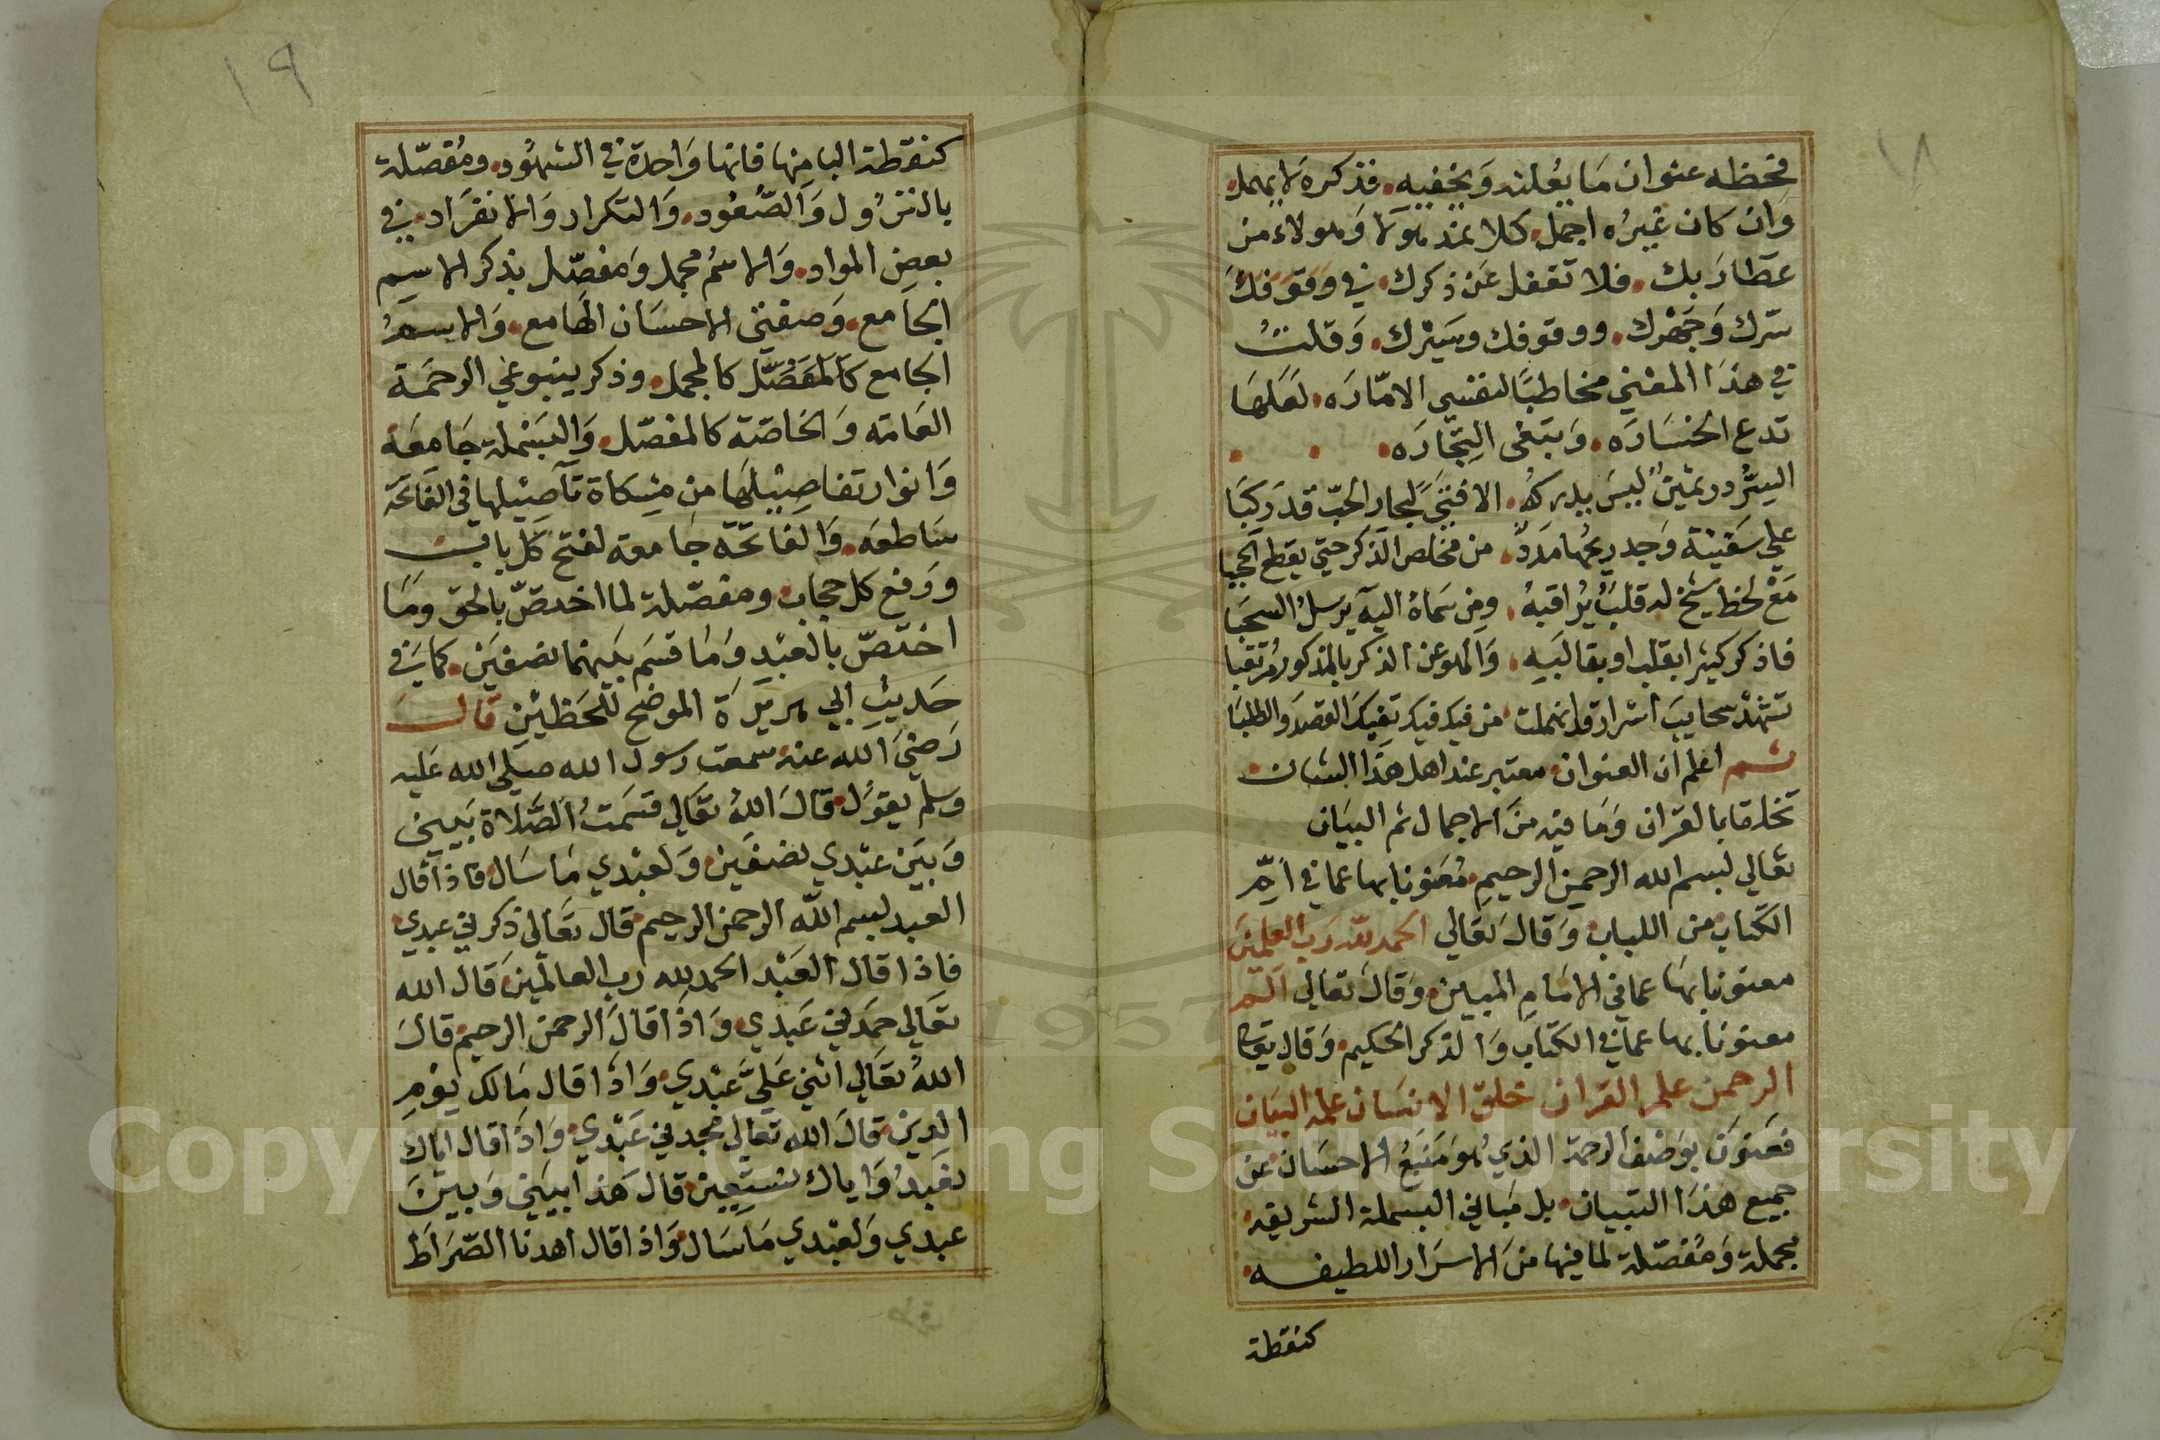 ١٨
فحظه عنوان مَا يُعْلنه وَيخفيه. فذكره لا يهمل
وَان كان غيرُه اجمل. كلا نمد هؤلا وَهولاء من
عطاءِ ربك. فلا تغفل عَن ذكرك. في وقوفك
سرك وَجَهْرك. ووقوفك وسَيْرك. وَقلتُ
في هذا المعْني مخاطبًا لنفسى الامّارَه. لعَلهَا
تدع الخسَارَه. وَتبتغى التِّجَارَه.
السِّرُّ در ثمين ليسَ يدركهُ. الا فتىً لبحار الحبّ قد رَكبَا
علي سَفينة وَجد ريحُها مَددٌ. من مخلص الذكر حتي يقطع الحجبا
مَعْ لحظ شيخ له قلبٌ يُراقبهُ. ومن سَماهُ اليه يرسلُ السحبَا
فاذكر كثيرا بقلب او بقالبهِ. وَالهو عن الذكر بالمذكور مرتقبا
تشهَدْ سحايبَ اسْرار قد انهملت من فيك فيك تفيك القصدَ والطلبَا
ثم اعلم ان العنوان معتبر عند اهل هَذا الشان
تخلقا بالقران وَمَا فيه منَ الاجمال ثم البيَان
تعالي بسم الله الرحمن الرحيم مُعَنونا بها عما في امِّ
الكتاب من اللباب وَقالَ تعالي الحمد للّه رَب العلمينَ
معنونا بهَا عما في الامَام المبين وَقالَ تعَالي الم
معنونا بها عما في الكتاب وَالذكر الحكيم وَقال تعَا
الرحمن علم القران خلق الانسَان علمه البيَان
فعَنوَن بوَصْف الرحمة الذي هُوَ مَنبَعُ الاحسَان عن
جميع هذا التبيان بل مَباني البسملة الشريفه
مجملة وَمُفصّلة لما فيها منَ الاسرَار اللطيفه
كنقطة
١٩
كنقطة البا منها فانها وَاحدة في الشهُود. ومُفصّلة
بالنزُول وَالصُّعُود. وَالتكرار وَالانفرَاد. في
بعض المواد. وَالاسمُ مجمل وَمفصّل بذكر الاسِم
الجامع. وَصفتى الاحسَان الهَامع. وَالاسمُ
الجامع كالمفَصَّل كالمجمل. وذكر ينبوعي الرحمَة
العَامّه وَالخاصّة كالمفصّل. وَالبسْملة جَامعَة
وَانوار تفاصيْلهَا من مِشكاة تآصيْلها في الفاتحَة
سَاطعَه. وَالفاتحَة جَامعة لفتح كل باب
وَرفع كل حجاب. ومفصّلة لما اختصّ بالحق وَمَا
اختصّ بالعبْدِ وَمَا قسَم بيَنهما نصفيَن. كما في
حَديثِ ابي هريرَة الموضح للحَظيْن قالَ
رَضيَ الله عنه سمعت رسول الله صلى الله عَليه
وسلم يقوُل قالَ اللهُ تعَالي قسَمتُ الصَّلَاة بَيني
وَبيَن عبْدي نصفَين وَلعبْدي مَا سَال فاذا قال
العبد بسم اللّه الرحمن الرحيم قال تعَالي ذكرني عبدي
فاذا قال العَبْد الحمد لله رب العالمين قال الله
تعَالي حمَدني عَبدي وَاذَا قالَ الرحمن الرحيم قالَ
اللهُ تعَالي اثني عَليَّ عبْدي وَاذا قال مَالك يوْمِ
الدين قالَ الله تعَالي مجدني عَبْدي وَاذا قال اياك
نعَبدُ وَاياك نستَعِين قال هَذا بيَني وَبَيْنَ
عبدي وَلعبْدي مَا سَال وَاذا قال اهدنا الصّرَاط
Copyright © King Saud University
1957